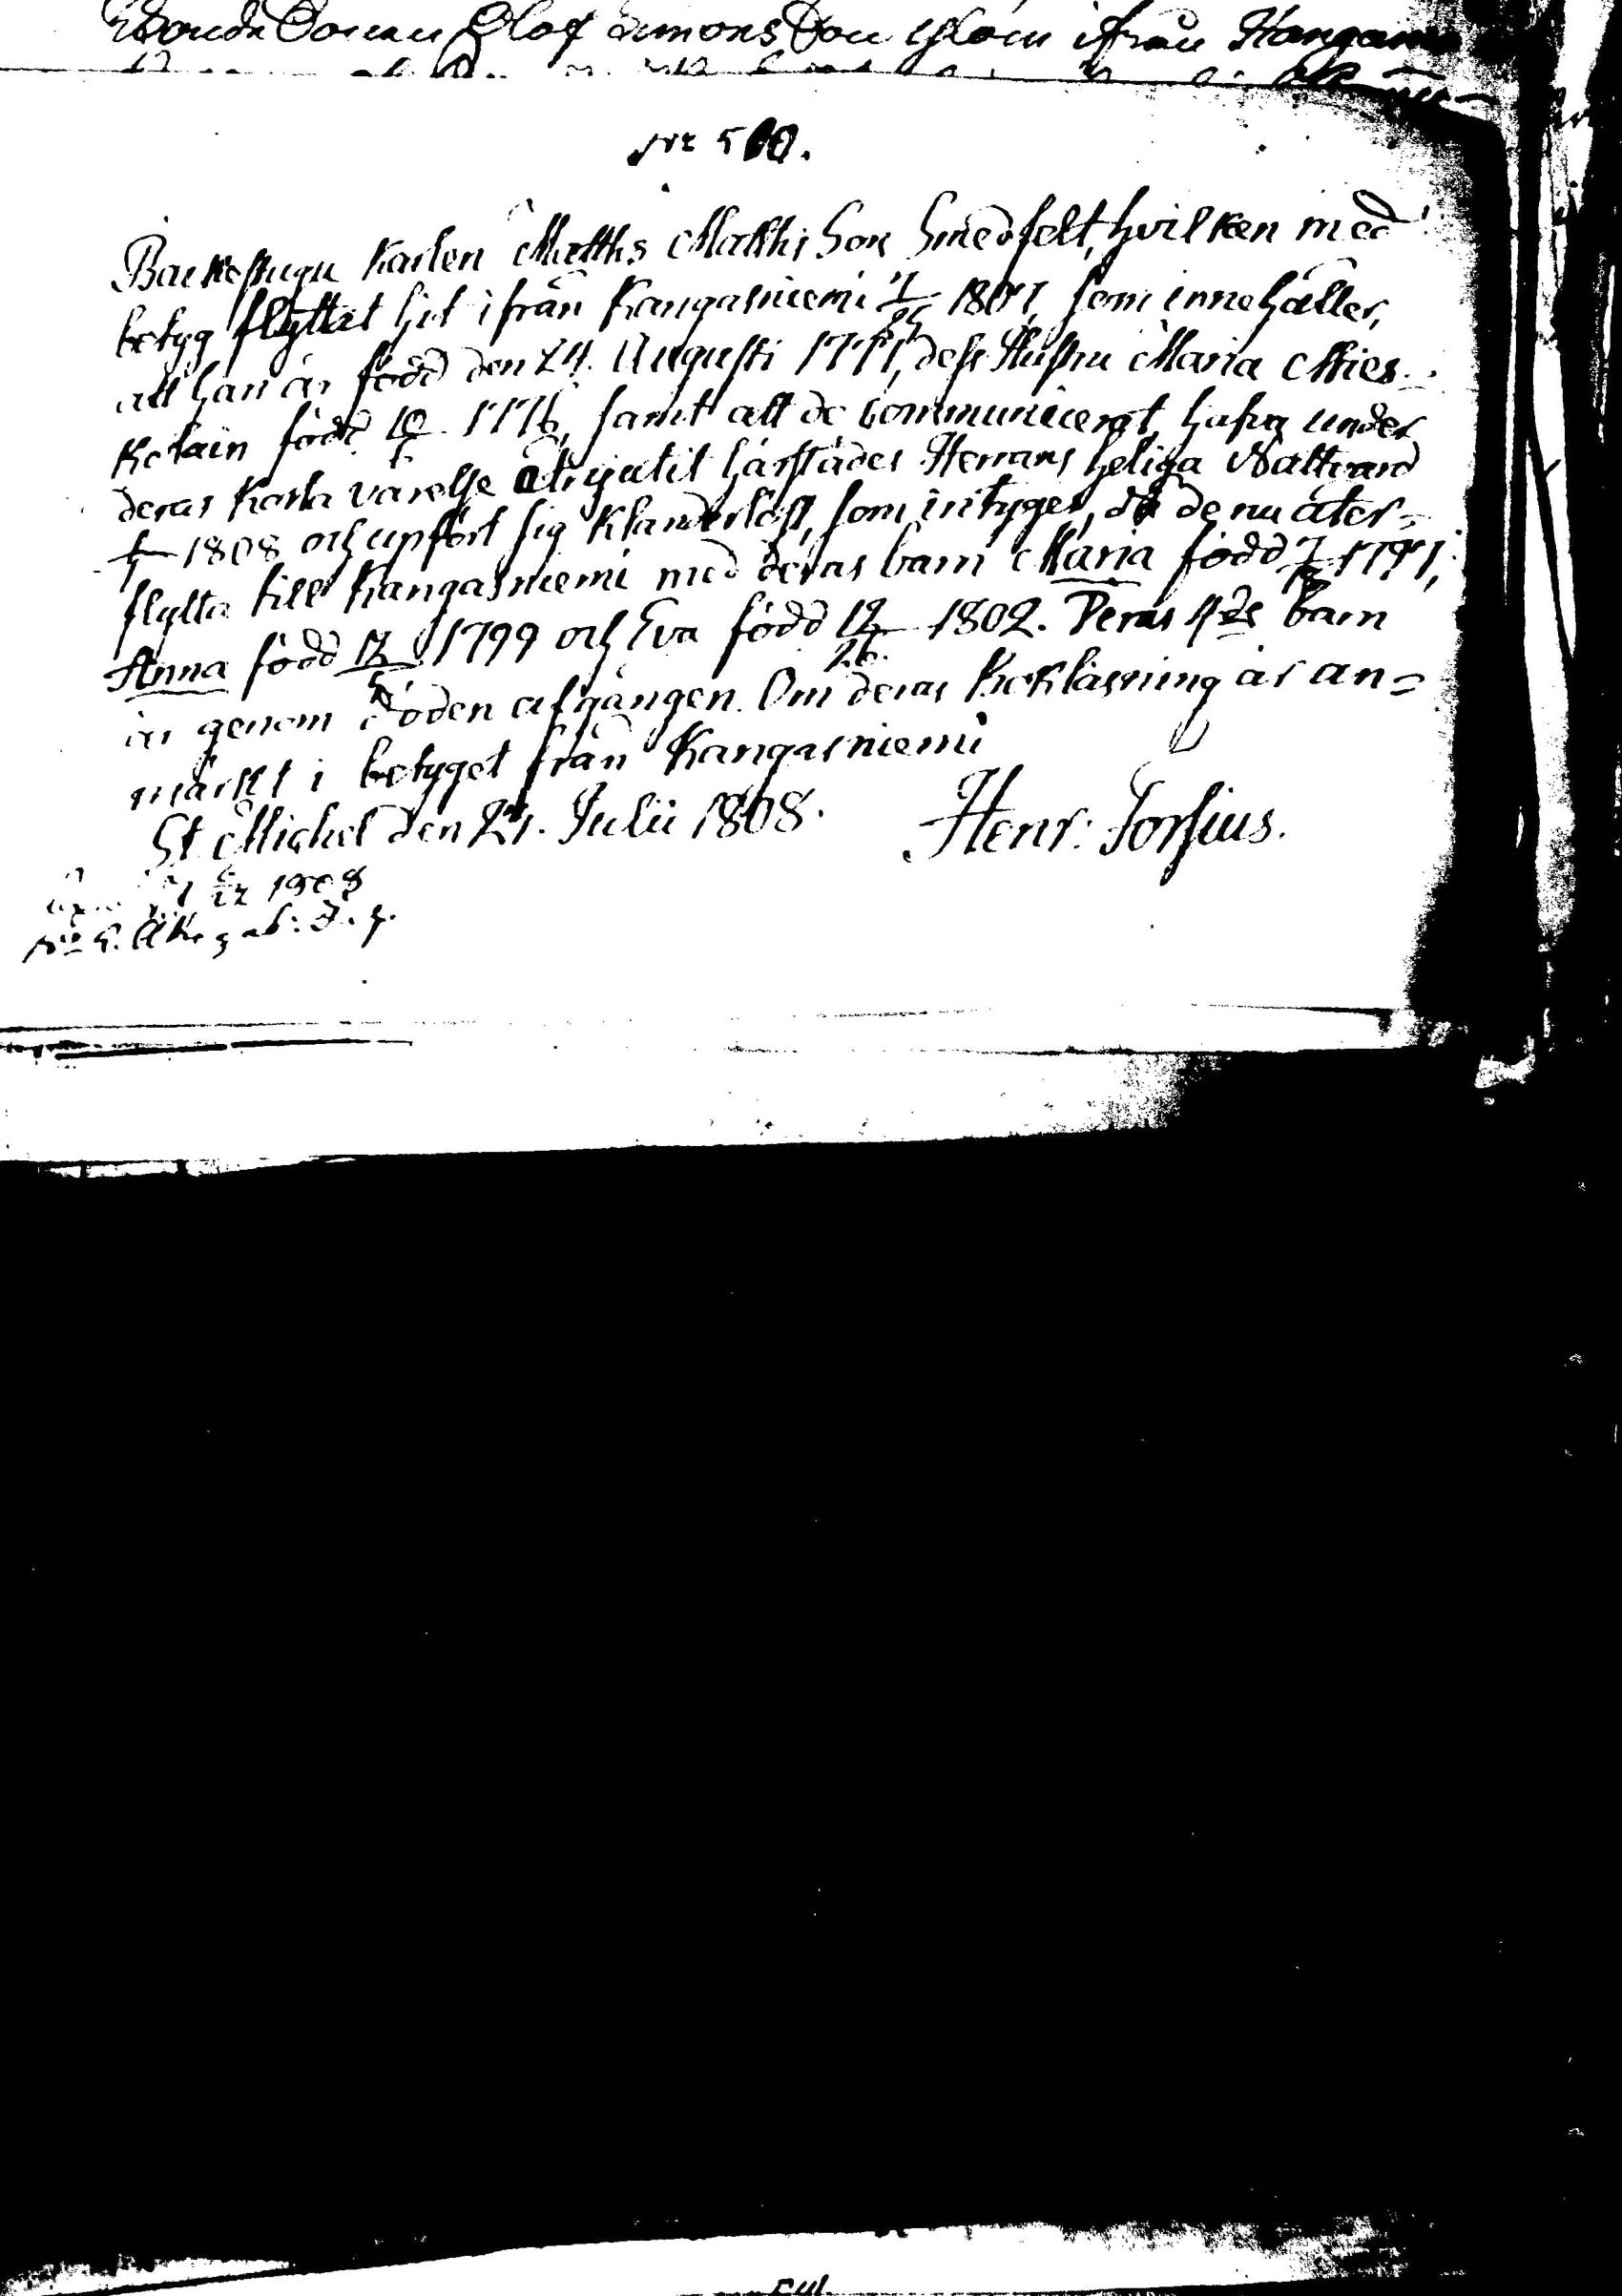 Olof Simons Son ifrån Kangas
Nr 560.
Backestugu Karlen Matths Matths Son Smedfelt, hvilken med
betyg flyttat hit ifrån Kangasniemi 1807, som innehåller,
att han är född den 24. Augusti 1771, dess Hustru Maria Mies-
kotain född 10 1776, samt att de communicerat hafva under
deras korta varelse härstädes Herrans heliga Nattvard
1808 och upfört sig Klanderlöst, som intyges, då de nu åter=
flytta till Kangasniemi med deras barn Maria född 1797,
Anna född 1799 och Eva född 12/26 1802. Deras barn
är genom döden afgången. Om deras Bokläsning är an=
märkt i betyget från Kangasniemi
St Michel den 21. Julii 1808. Henr: Forsius.
1808